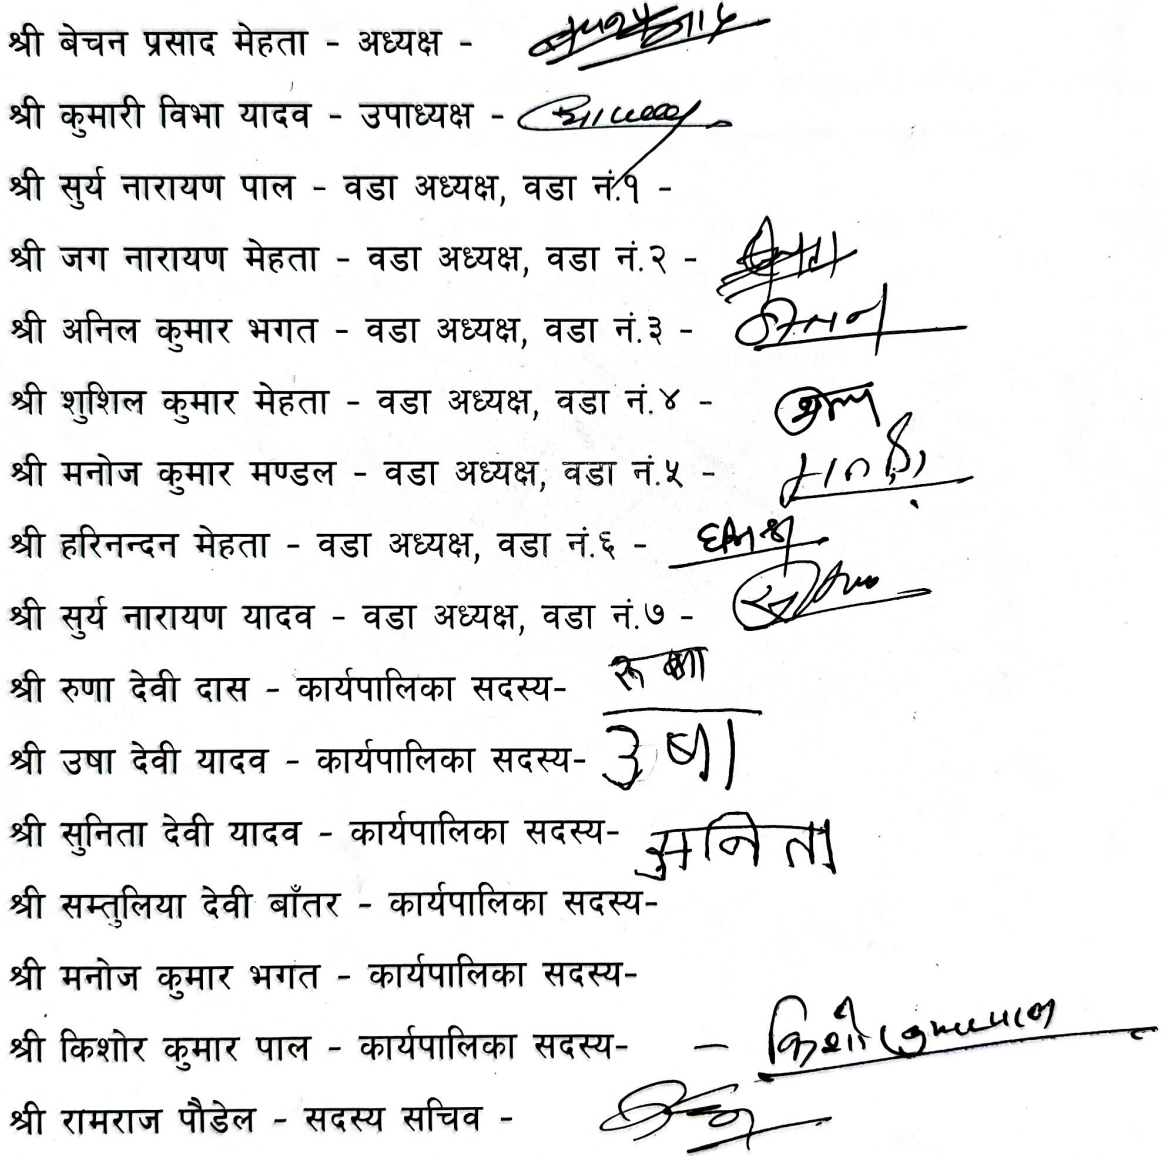 श्री बेचन प्रसाद मेहता - अध्यक्ष -
श्री कुमारी विभा यादव - उपाध्यक्ष -
श्री सुर्य नारायण पाल - वडा अध्यक्ष, वडा नं.१ -
श्री जग नारायण मेहता - वडा अध्यक्ष, वडा नं.२ -
श्री अनिल कुमार भगत - वडा अध्यक्ष, वडा नं.३ -
श्री शुशिल कुमार मेहता - वडा अध्यक्ष, वडा नं.४ -
श्री मनोज कुमार मण्डल - वडा अध्यक्ष, वडा नं.५ -
श्री हरिनन्दन मेहता - वडा अध्यक्ष, वडा नं.६ -
श्री सुर्य नारायण यादव - वडा अध्यक्ष, वडा नं.७ -
श्री रुणा देवी दास - कार्यपालिका सदस्य-
श्री उषा देवी यादव - कार्यपालिका सदस्य- उषा
श्री सुनिता देवी यादव - कार्यपालिका सदस्य- सुनिता
श्री सम्तुलिया देवी बाँतर - कार्यपालिका सदस्य-
श्री मनोज कुमार भगत - कार्यपालिका सदस्य-
श्री किशोर कुमार पाल - कार्यपालिका सदस्य- - किशोर कुमार पाल
श्री रामराज पौडेल - सदस्य सचिव -